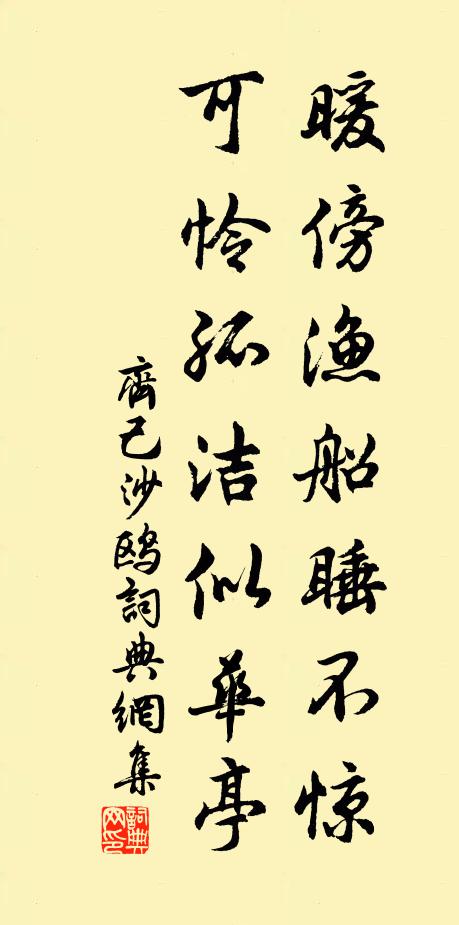 暖傍渔船睡不惊
可怜孤洁似華亭
齊己沙鸥詞典網集
詞典網印